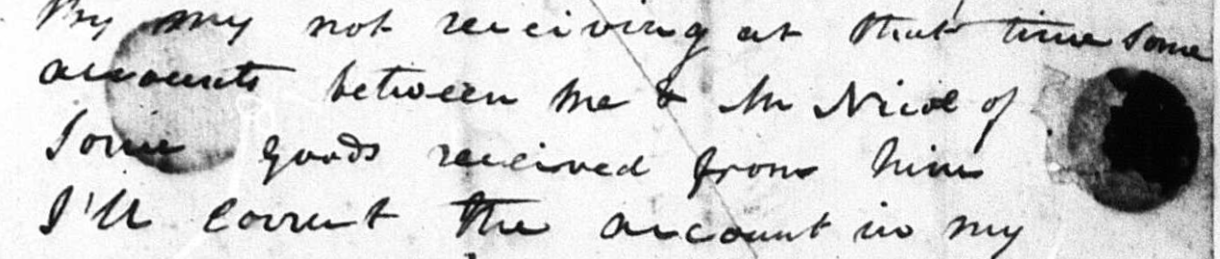 By my not receiving at that time some
accounts between me & Mr Nicol of
Some goods received from him
I'll correct the account in my